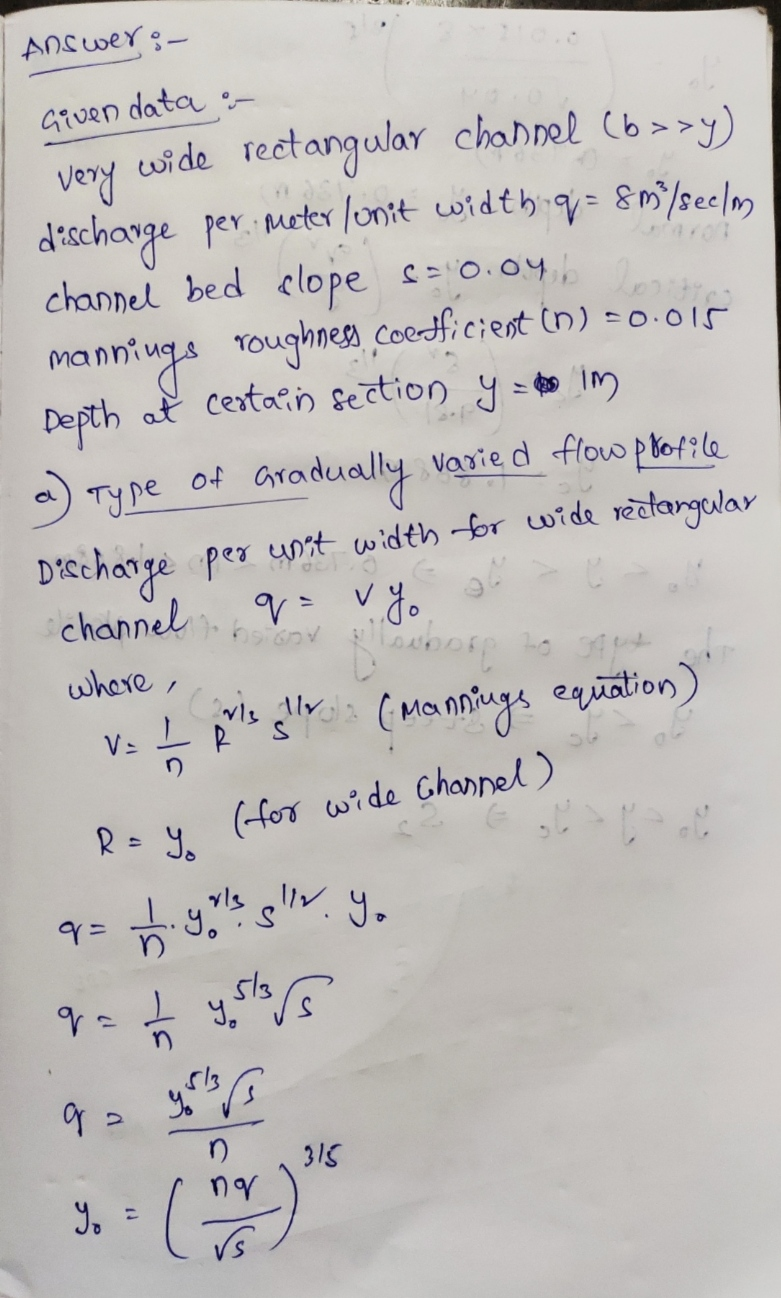 Answer :-
Given data :-
very wide rectangular channel (b>>y)
discharge per meter/unit width q = 8m³/sec/m
channel bed slope s = 0.04
mannings roughness coefficient (n) = 0.015
Depth at certain section y = 1m
a) Type of Gradually varied flow profile
Discharge per unit width for wide rectangular
channel q = v y₀
where,
V = 1/n R^2/3 S^1/2 (Mannings equation)
R = y₀ (for wide channel)
q = 1/n · y₀^2/3 · s^1/2 · y₀
q = 1/n y₀^5/3 √s
q = y₀^5/3 √s / n
y₀ = (nq / √s)^3/5